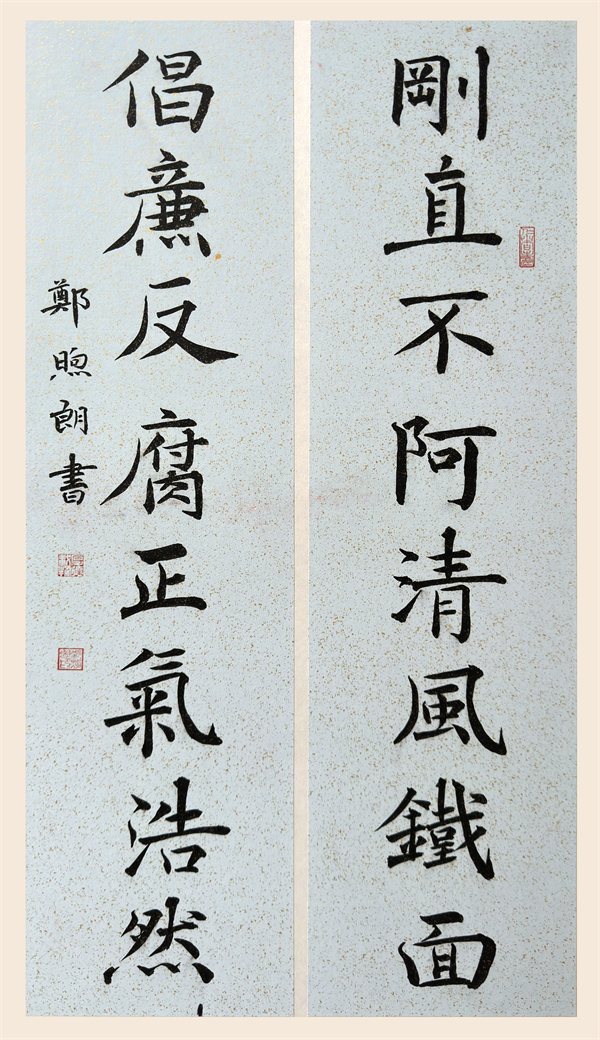 剛直不阿清風鐵面
倡廉反腐正氣浩然
鄭煦朗書